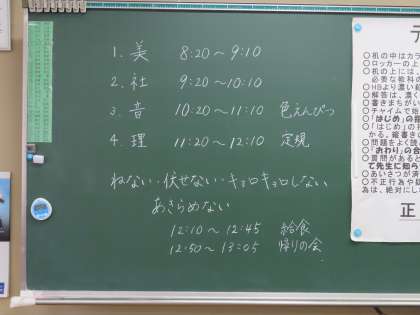 1. 美 8:20～9:10
2. 社 9:20～10:10
3. 音 10:20～11:10 色えんぴつ
4. 理 11:20～12:10 定規
ねない・伏せない・キョロキョロしない
あきらめない
12:10～12:45 給食
12:50～13:05 帰りの会
テ
○机の中はカラ
○ロッカーの上
○机の上には、
必要な教科の
○HBより濃い鉛
○解答は、濃く
○書きまちがい
○チャイムで始
「はじめ」の指
○「はじめ」の
かる。縦書き
○問題をよく読
○「おわり」の合
○質問があると
て先生に知ら
○あいさつが済
○不正行為や
為は、絶対にし
正